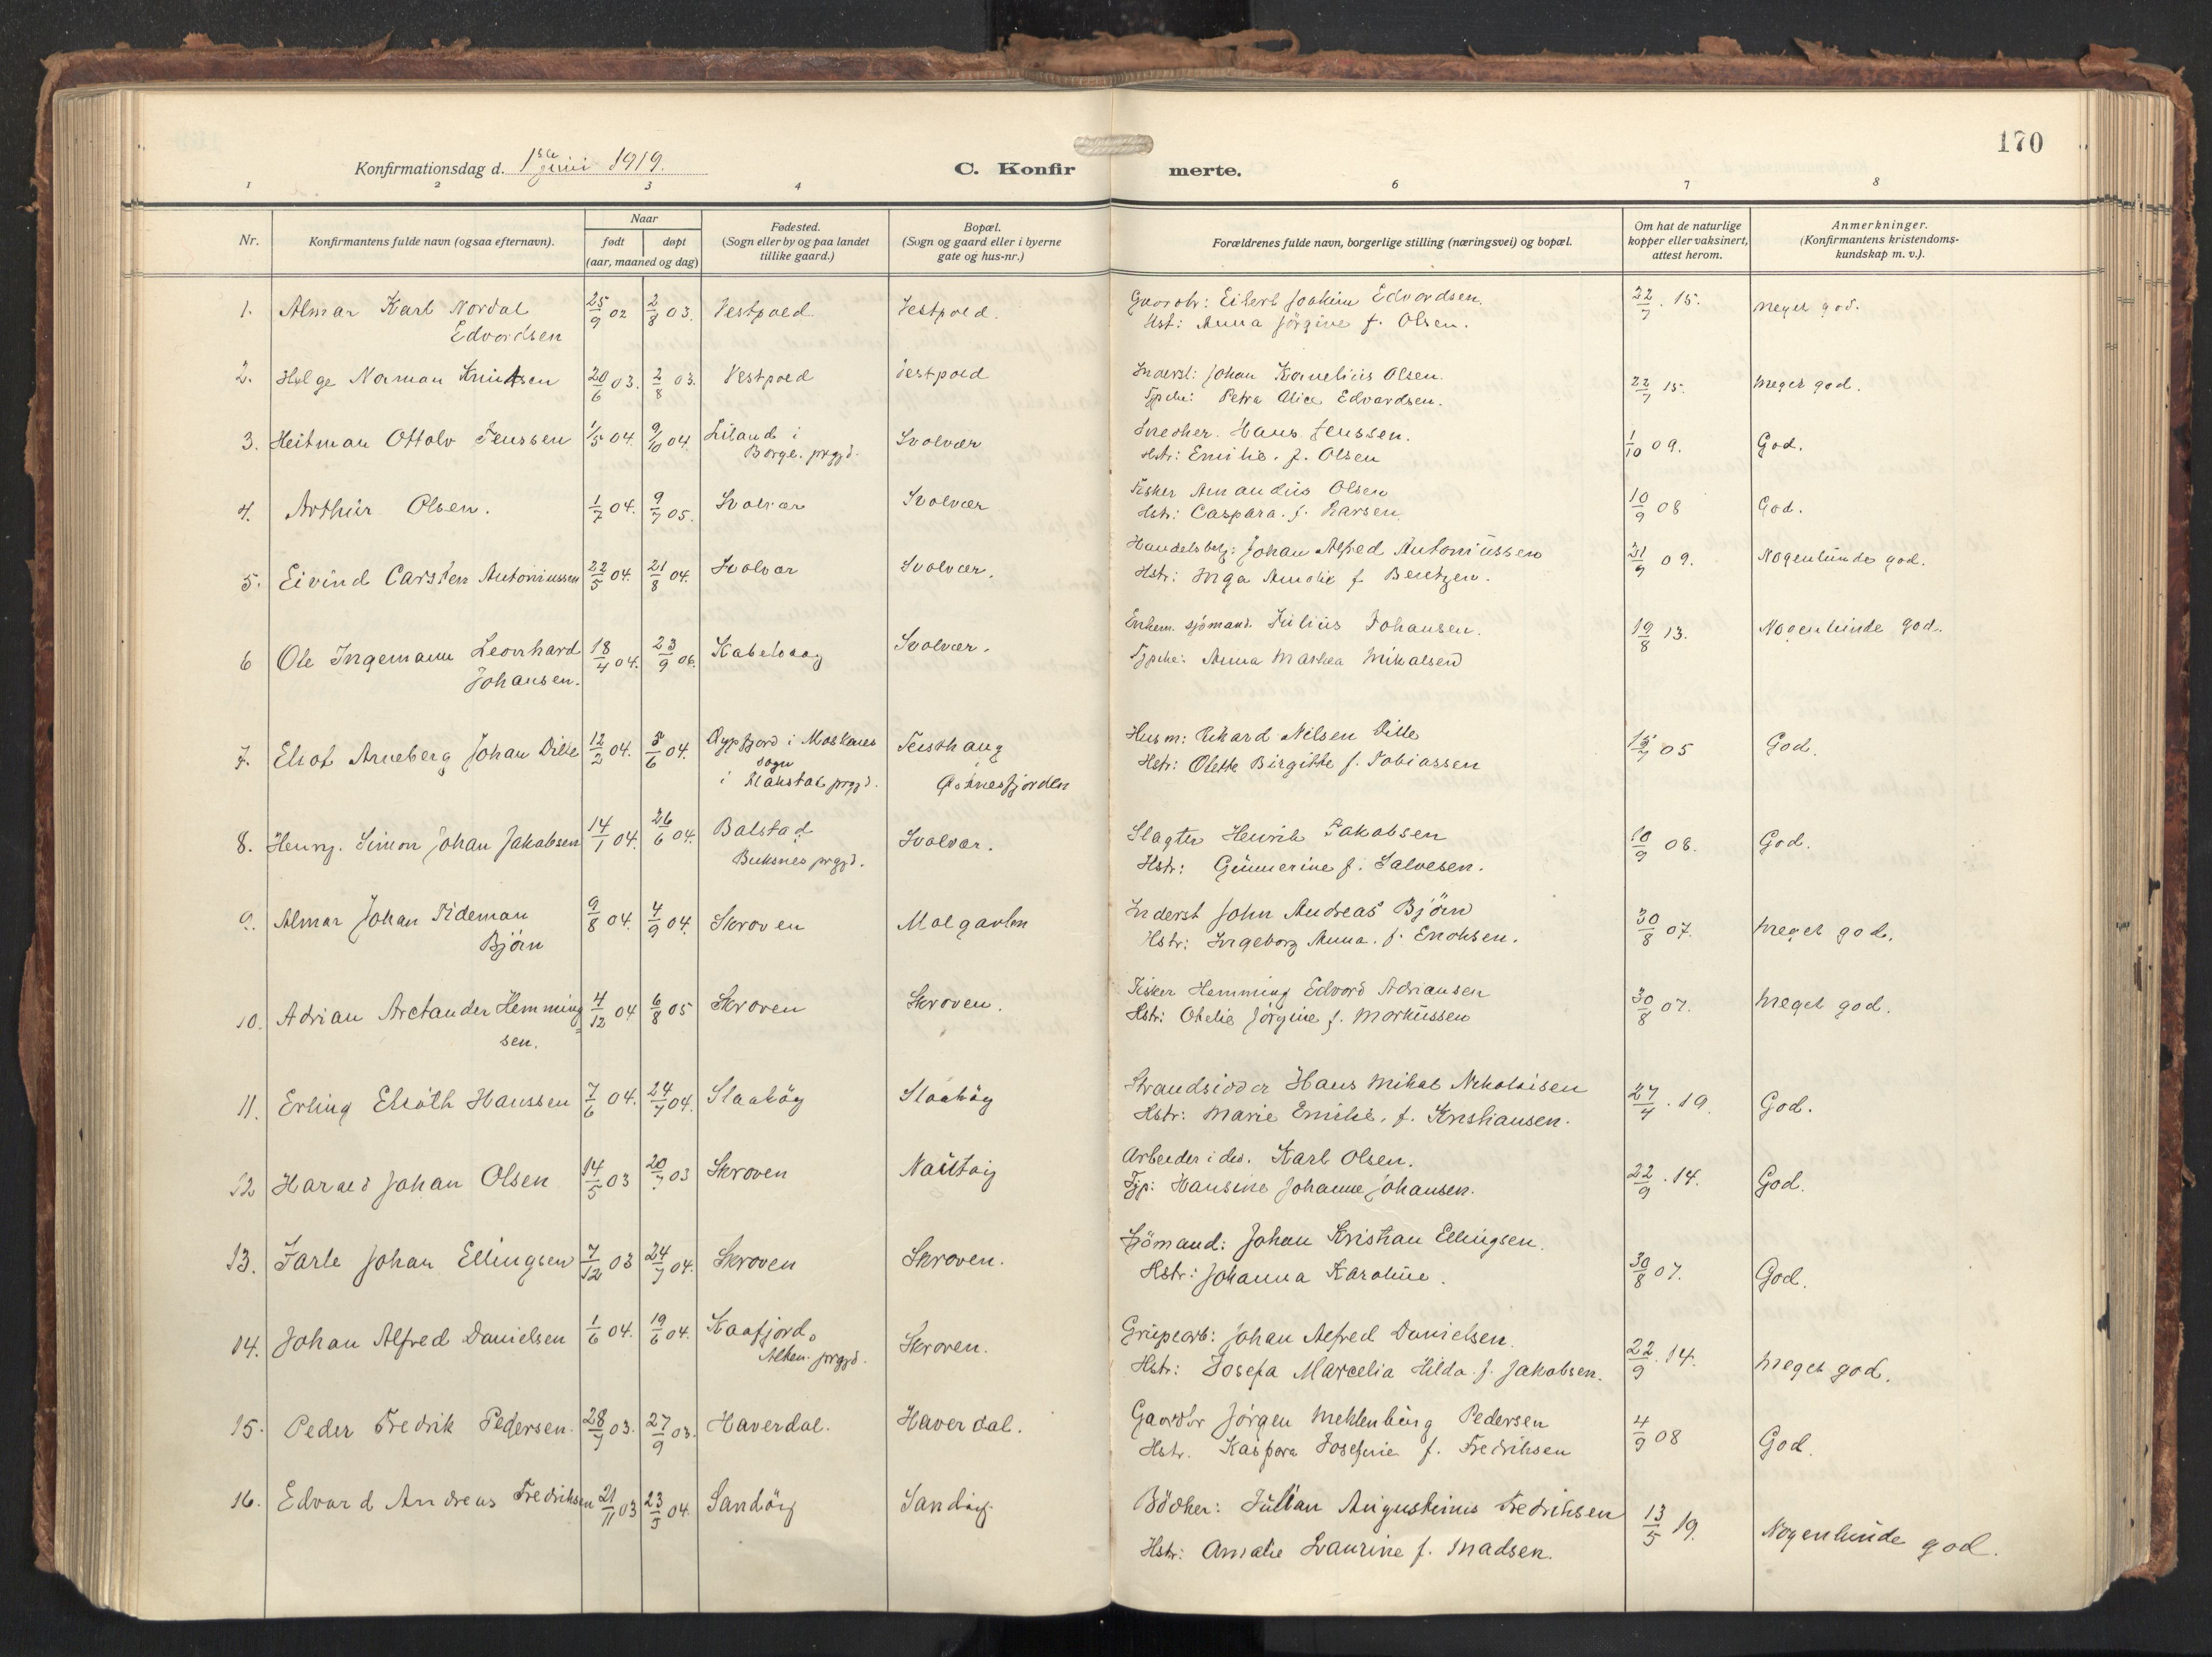 170
Konfirmationsdag d. 1ste juni 1919.
C. Konfirmerte.
1 2 3 4 6 7 8
Nr.
Konfirmantens fulde navn (ogsaa efternavn).
Naar
født døpt
(aar, maaned og dag)
Fødested.
(Sogn eller by og paa landet
tillike gaard.)
Bopæl.
(Sogn og gaard eller i byerne
gate og hus-nr.)
Forældrenes fulde navn, borgerlige stilling (næringsvei) og bopæl.
Om hat de naturlige
kopper eller vaksinert,
attest herom.
Anmerkninger.
(Konfirmantens kristendoms-
kundskap m. v.).
1. Almar Karl Nordal 25/9 02 2/8 03. Vestpold Vestpold. Gaardbr: Eilert Joakim Edvardsen. 22/7. 15. meget god.
Edvardsen Hst: Anna Jörgine f. Olsen.
2. Helge Norman Knutsen 20/6 03. 2/8 03. Vestpold Vestpold Inderst: Johan Kornelius Olsen. 22/7 15. meget god.
Petra Alice Edvardsen.
3. Heitman Ottolv Jenssen 1/5 04. 9/10 04. Liland i Svolvær Snedker. Hans Jenssen. 1/10 09. God.
Borge. prgjd. Hstr: Emilie. f. Olsen
4. Arthur Olsen. 1/7 04. 9/7 05. Svolvær Svolvær Fisker Amandus Olsen 10/9 08 God.
Hstr: Caspara. f. Larsen
5. Eivind Carsten Antoniussen 22/5 04. 21/8 04. Svolvær Svolvær. Handelsbetj: Johan Alfred Antoniussen 09. Nogenlunde god.
Hstr: Inga Amalie f. Bentzen.
6 Ole Ingemann Leonhard 18/4 04. 23/9 06. Kabelvaag Svolvær. Enkem. sjömand. Julius Johansen. 19/8 13. Nogenlunde god.
Johansen. Anna Mathea Mikalsen
7. Eliot Arneberg Johan Dille 12/2 04. 5/6 04. i Moskenes Husm: Rikard Nilsen Dille 05 God.
sogn Hstr: Olette Birgitte f. Tobiassen
i prgjd.
8. Henry. Simon Johan Jakobsen 14/1 04. 26/6 04. Balstad Svolvær. Slagter Henrik Jakobsen 10/9 08. God.
Buksnes prgjd. Hstr: Gunnerine f. Salvesen.
9. Almar Johan Tideman 9/8 04. 4/9 04. Skroven Molgavlen Inderst John Andreas Björn 30/8 07. meget god.
Björn Hstr: Ingeborg Anna. f. Enoksen.
10. Adrian Arctander Hemming= 4/12 04 6/8 05 Skroven Skroven. Fisker Hemming Edvard Adriansen 30/8 07. meget god.
sen. Hstr: Otelie Jörgine f. Markussen
11. Erling Elioth Hanssen 7/6 04. 24/7 04. Slaatöy Slaatöy Strandsidder Hans Mikal Nikolaisen 27/4. 19. God.
Hstr: Marie Emilie. f. Kristiansen.
12 Harald Johan Olsen 14/5 03 20/7 03 Skroven Nautöy Arbeider Karl Olsen. 22/9. 14. God.
Hansine Johanne Johansen.
13. Jarle Johan Ellingsen 7/12 03 24/7 04. Skroven Skroven. Sjömand: Johan Kristian Ellingsen. 30/8 07. God.
Hstr: Johanna Karoline.
14. Johan Alfred Danielsen 1/6 04. 19/6 04. Kaafjord. Skroven. Grupearb: Johan Alfred Danielsen. 22/9. 14. meget god.
Alten. prgjd. Hstr: Josefa Marcelia Hilda f. Jakobsen.
15. Peder Fredrik Pedersen. 28/7 03. 27/9 03. Haverdal. Haverdal. Gaardbr Jörgen Meklenburg Pedersen 4/9 08 God.
Hstr. Kaspara Josefine f. Fredriksen
16. Edvard Andreas Fredriksen 21/11 03 23/5 04. Sandöy Sandöy. Bödker: Julian Augustinus Fredriksen 13/5 19. Nogenlunde god.
Hstr: Amalie Laurine f. Madsen.